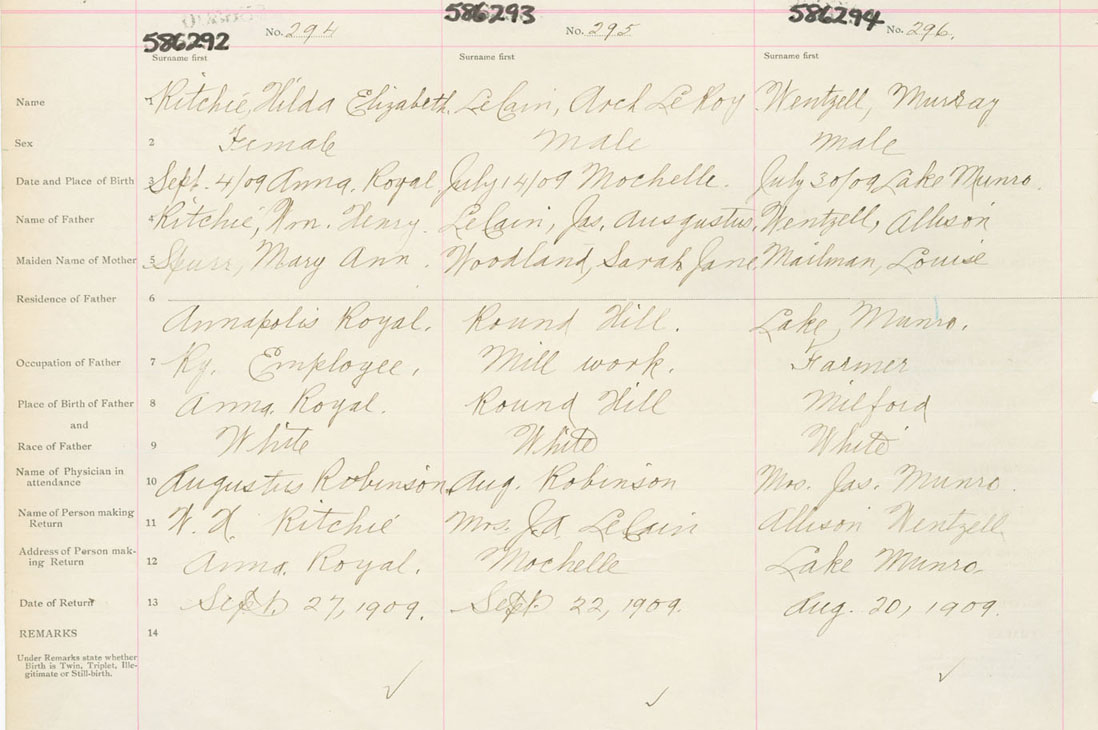 586292 586293 586294
No. 294 No. 295 No. 296.
Surname first Surname first Surname first
Name 1 Ritchie, Hilda Elizabeth. LeCain, Arch LeRoy Wentzell, Murray
Sex 2 Female Male Male
Date and Place of Birth 3 Sept. 4/09 Anna. Royal July 14/09 Mochelle. July 30/09 Lake Munro.
Name of Father 4 Ritchie, Wm. Henry. LeCain, Jas. Ausgustus. Wentzell, Allison
Maiden Name of Mother 5 Spurr, Mary Ann. Woodland, Sarah Jane Mailman, Louise
Residence of Father 6
Annapolis Royal. Round Hill. Lake Munro.
Occupation of Father 7 Ry. Employee. Mill work. Farmer
Place of Birth of Father 8 Anna. Royal. Round Hill Milford
and
Race of Father 9 White White White
Name of Physician in
attendance 10 Augustus Robinson Aug. Robinson Mrs. Jas. Munro.
Name of Person making
Return 11 W. H. Ritchie Mrs. J A LeCain Allison Wentzell
Address of Person mak-
ing Return 12 Anna. Royal. Mochelle Lake Munro
Date of Return 13 Sept. 27, 1909. Sept. 22, 1909. Aug. 20, 1909.
REMARKS 14
Under Remarks state whether
Birth is Twin, Triplet, Ille-
gitimate or Still-birth.